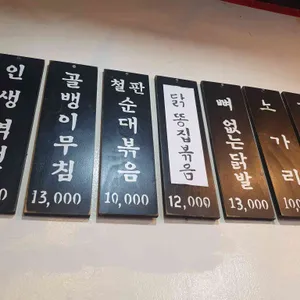 인생
골뱅이무침
13,000
철판
순대볶음
10,000
닭똥집볶음
12,000
뼈없는닭발
13,000
노가리